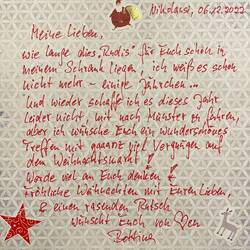 Nikolausi, 06.12.2022
Meine Lieben,
wie lange dies "Rudis" für Euch schon in
meinem Schrank liegen, ich weiß es schon
nicht mehr - einige Jährchen...
Und wieder schaff ich es dieses Jahr
leider nicht, mit nach Münster zu fahren,
aber ich wünsche Euch ein wunderschönes
Treffen mit gaaanz viel Vergnügen auf
dem Weihnachtsmarkt!
Werde viel an Euch denken &
Fröhliche Weihnachten mit Euren Lieben,
& einen rasenden Rutsch
wünscht Euch von
Bettina